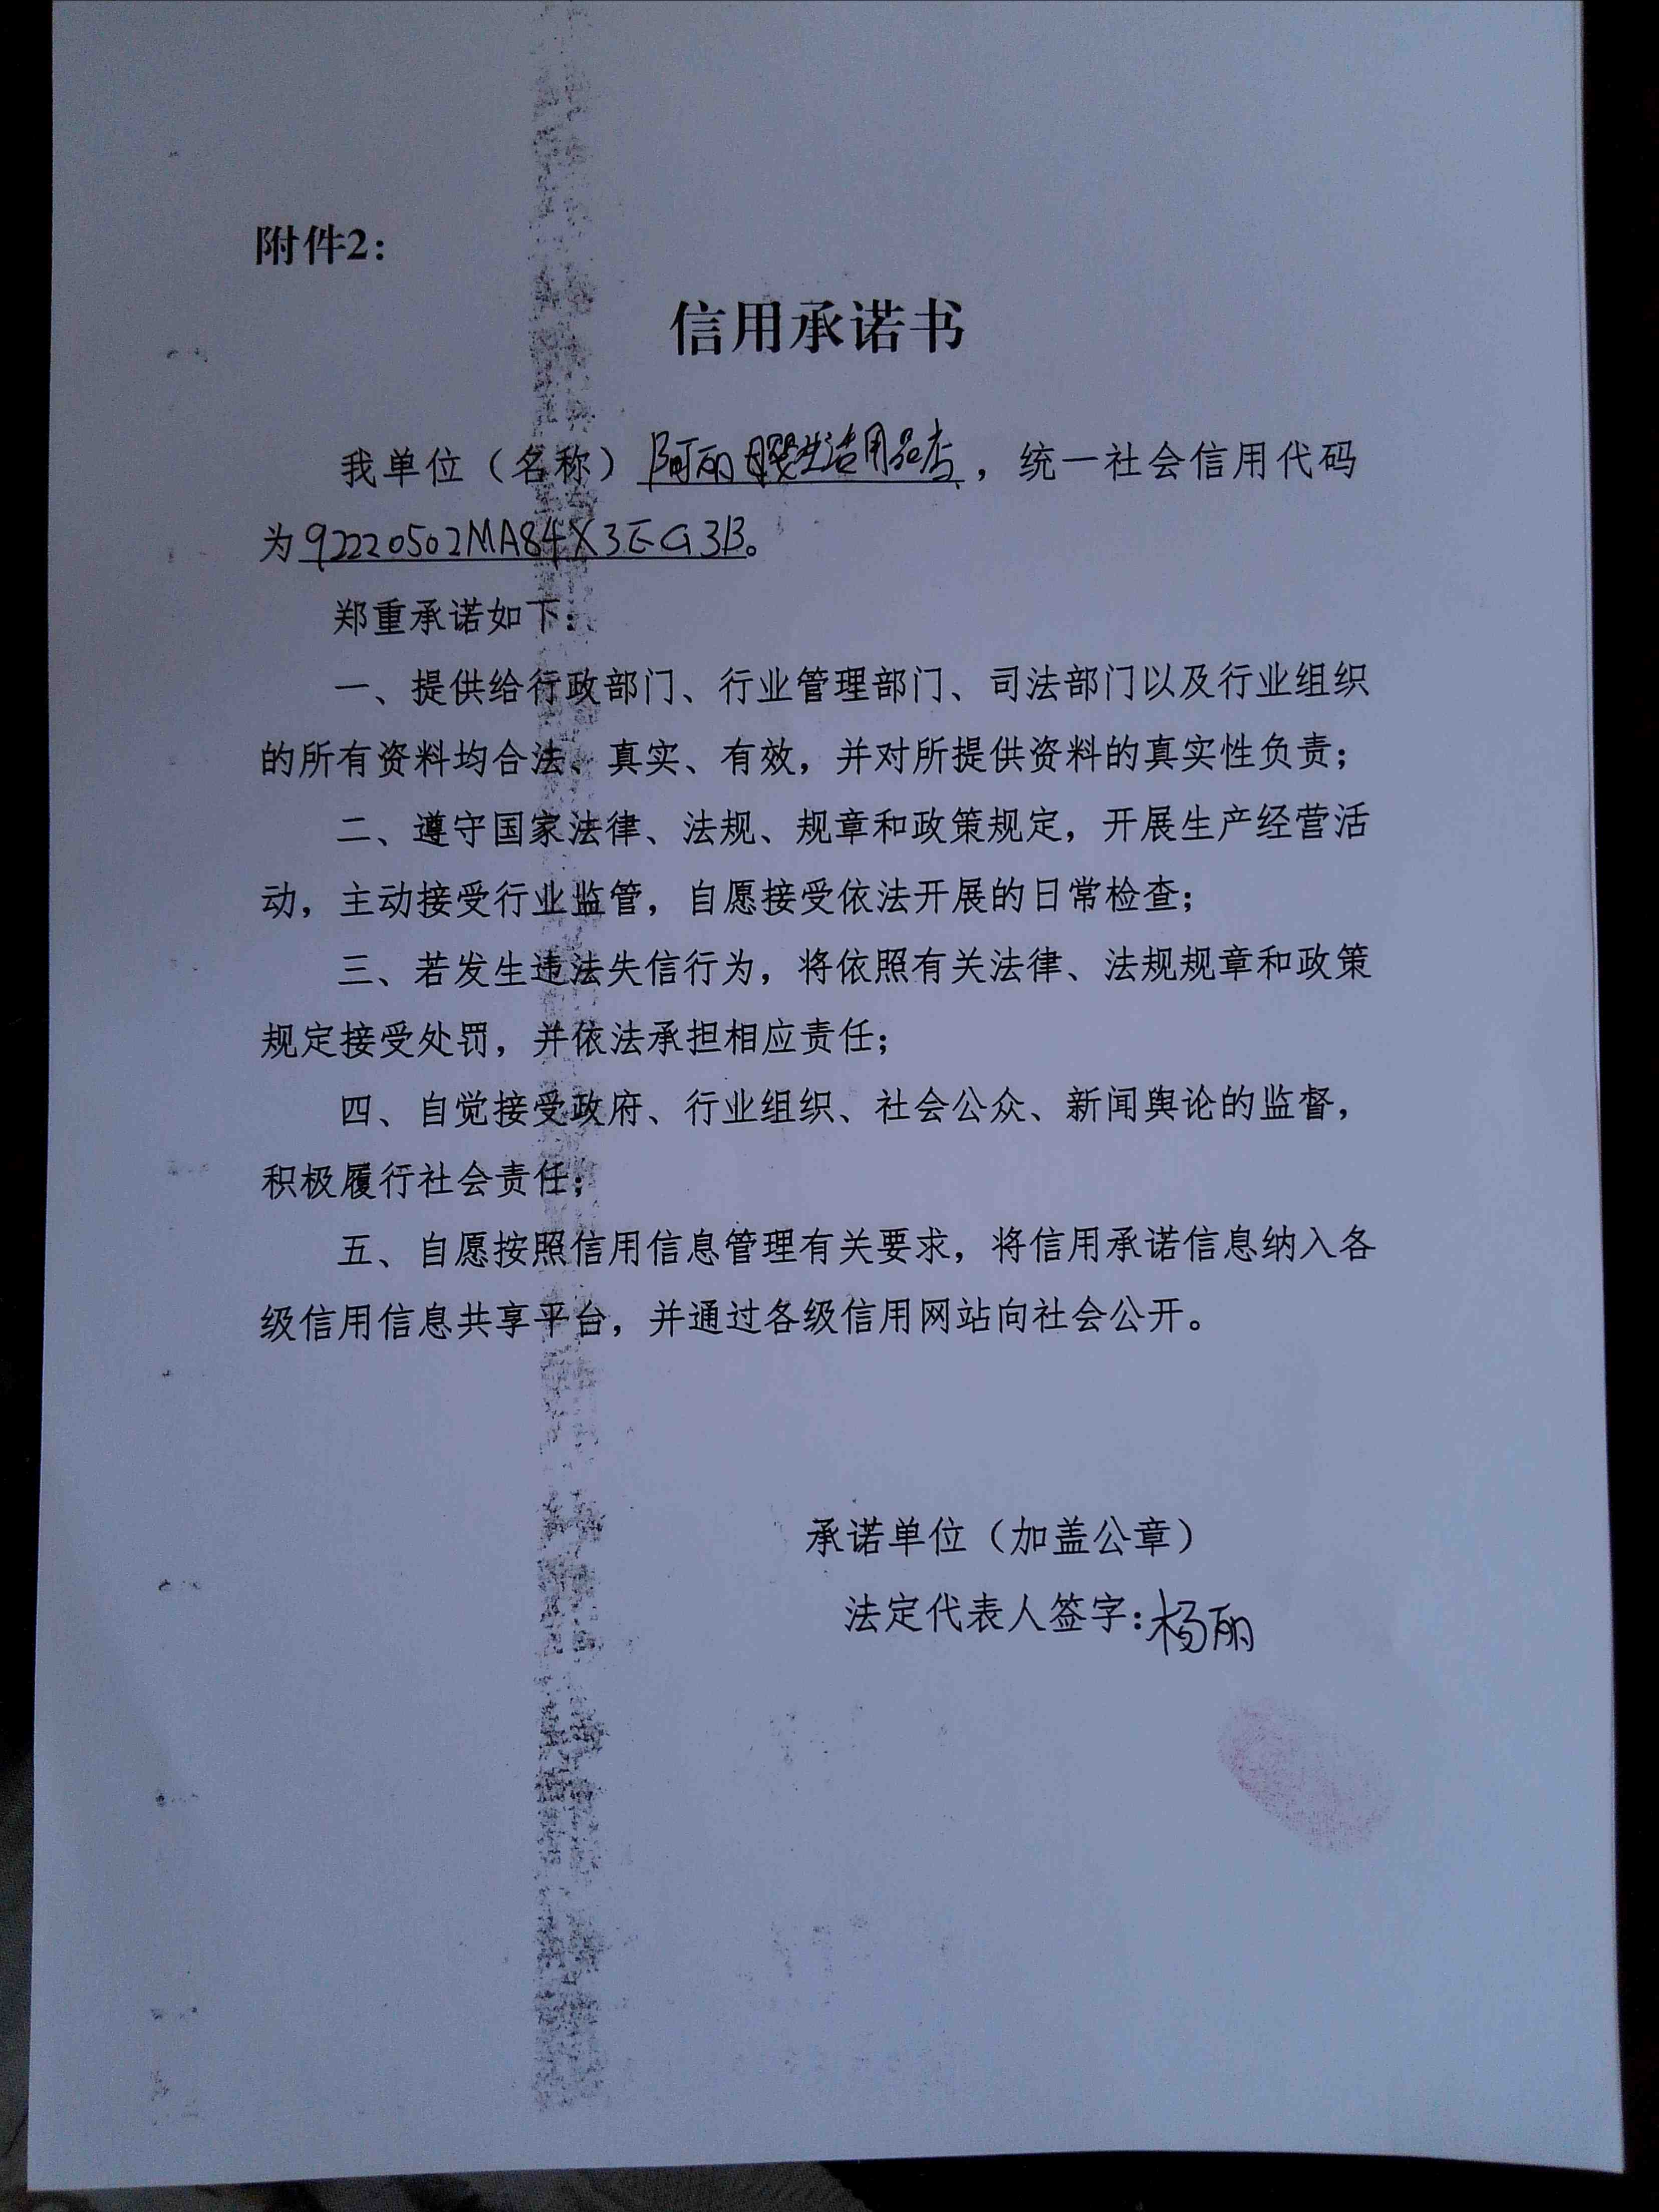 附件2：
信用承诺书
我单位（名称）阿丽母婴生活用品店，统一社会信用代码
为92220502MA84X3EG3B。
郑重承诺如下：
一、提供给行政部门、行业管理部门、司法部门以及行业组织
的所有资料均合法、真实、有效，并对所提供资料的真实性负责；
二、遵守国家法律、法规、规章和政策规定，开展生产经营活
动，主动接受行业监管，自愿接受依法开展的日常检查；
三、若发生违法失信行为，将依照有关法律、法规规章和政策
规定接受处罚，并依法承担相应责任；
四、自觉接受政府、行业组织、社会公众、新闻舆论的监督，
积极履行社会责任；
五、自愿按照信用信息管理有关要求，将信用承诺信息纳入各
级信用信息共享平台，并通过各级信用网站向社会公开。
承诺单位（加盖公章）
法定代表人签字：杨丽